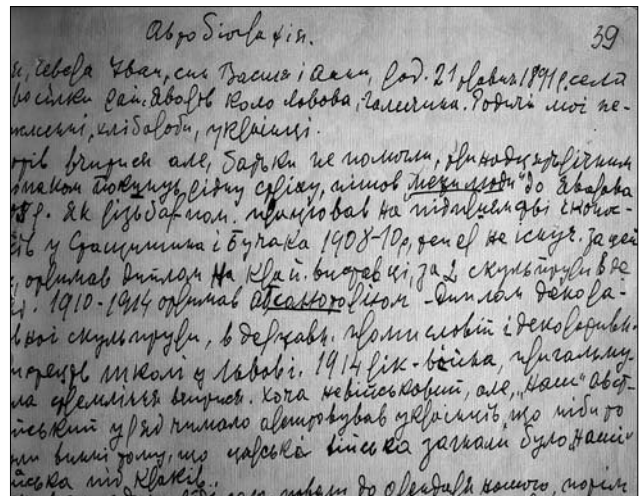 Автобіографія. 39
Я, Севера Іван, син Василя і Анни, род. 21 травня 1891 р. села
Новосілки рай. Яворів коло Львова, Галичина. Родичі мої не-
заможні, хлібороби, українці.
вчитися але, батьки не помогли, тринадцятьрічним
покинув рідну стріху, пішов "межи люди" до Яворова
р. Як різьбар-пом. працював на підприємстві іконос-
у Сташишина і Бучака 1908-10 р, тепер не існує. За цей
отримав диплом на край. виставці, за 2 скульптури в де
. 1910-1914 отримав абсолюторіюм - диплом декора-
вної скульптури, в держав. промисловій і декоративн.
школі у Львові. 1914 рік - війна, пригальму-
ла стремління вчитися. Хоча невійськовий, але, "наш" авст-
ійський уряд чимало арештовував українців, що нібито
винні тому, що царські війська загнали було "наші"
війська під Краків..